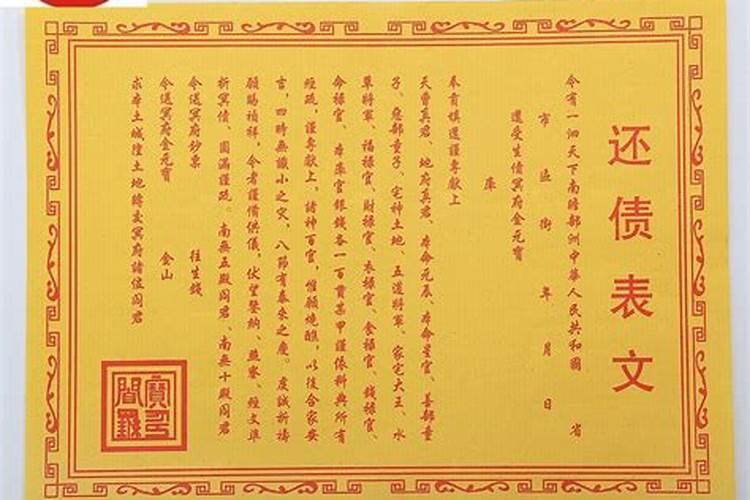 还债表文
今有一泗天下南瞻部洲中華人民共和國 省
市 區 街 年 月 日
還受生債冥府金元寶
庫
奉首填還謹專獻上
天曹真君、地府真君、本命元辰、本命星官、善部童
子、惡部童子、宅神土地、五道將軍、家宅大王、水
草將軍、福祿官、財祿官、衣祿官、食祿官、錢祿官、
命祿官、本庫官銀錢各一百貫某甲謹依科典所有
經疏，謹專獻上，諸神百官，惟願燒醮，以後合家安
吉，四時無識小之災，八節有泰來之慶。虔誠祈禱
願賜禎祥，今者謹備供儀，伏望鑒納、燕寮、經文準
折冥債、圓滿謹疏。南無五殿閻君、南無十殿閻君
今送冥府鈔票 往生錢
今送冥府金元寶 金山
求本土城隍土地轉交冥府諸位閻君